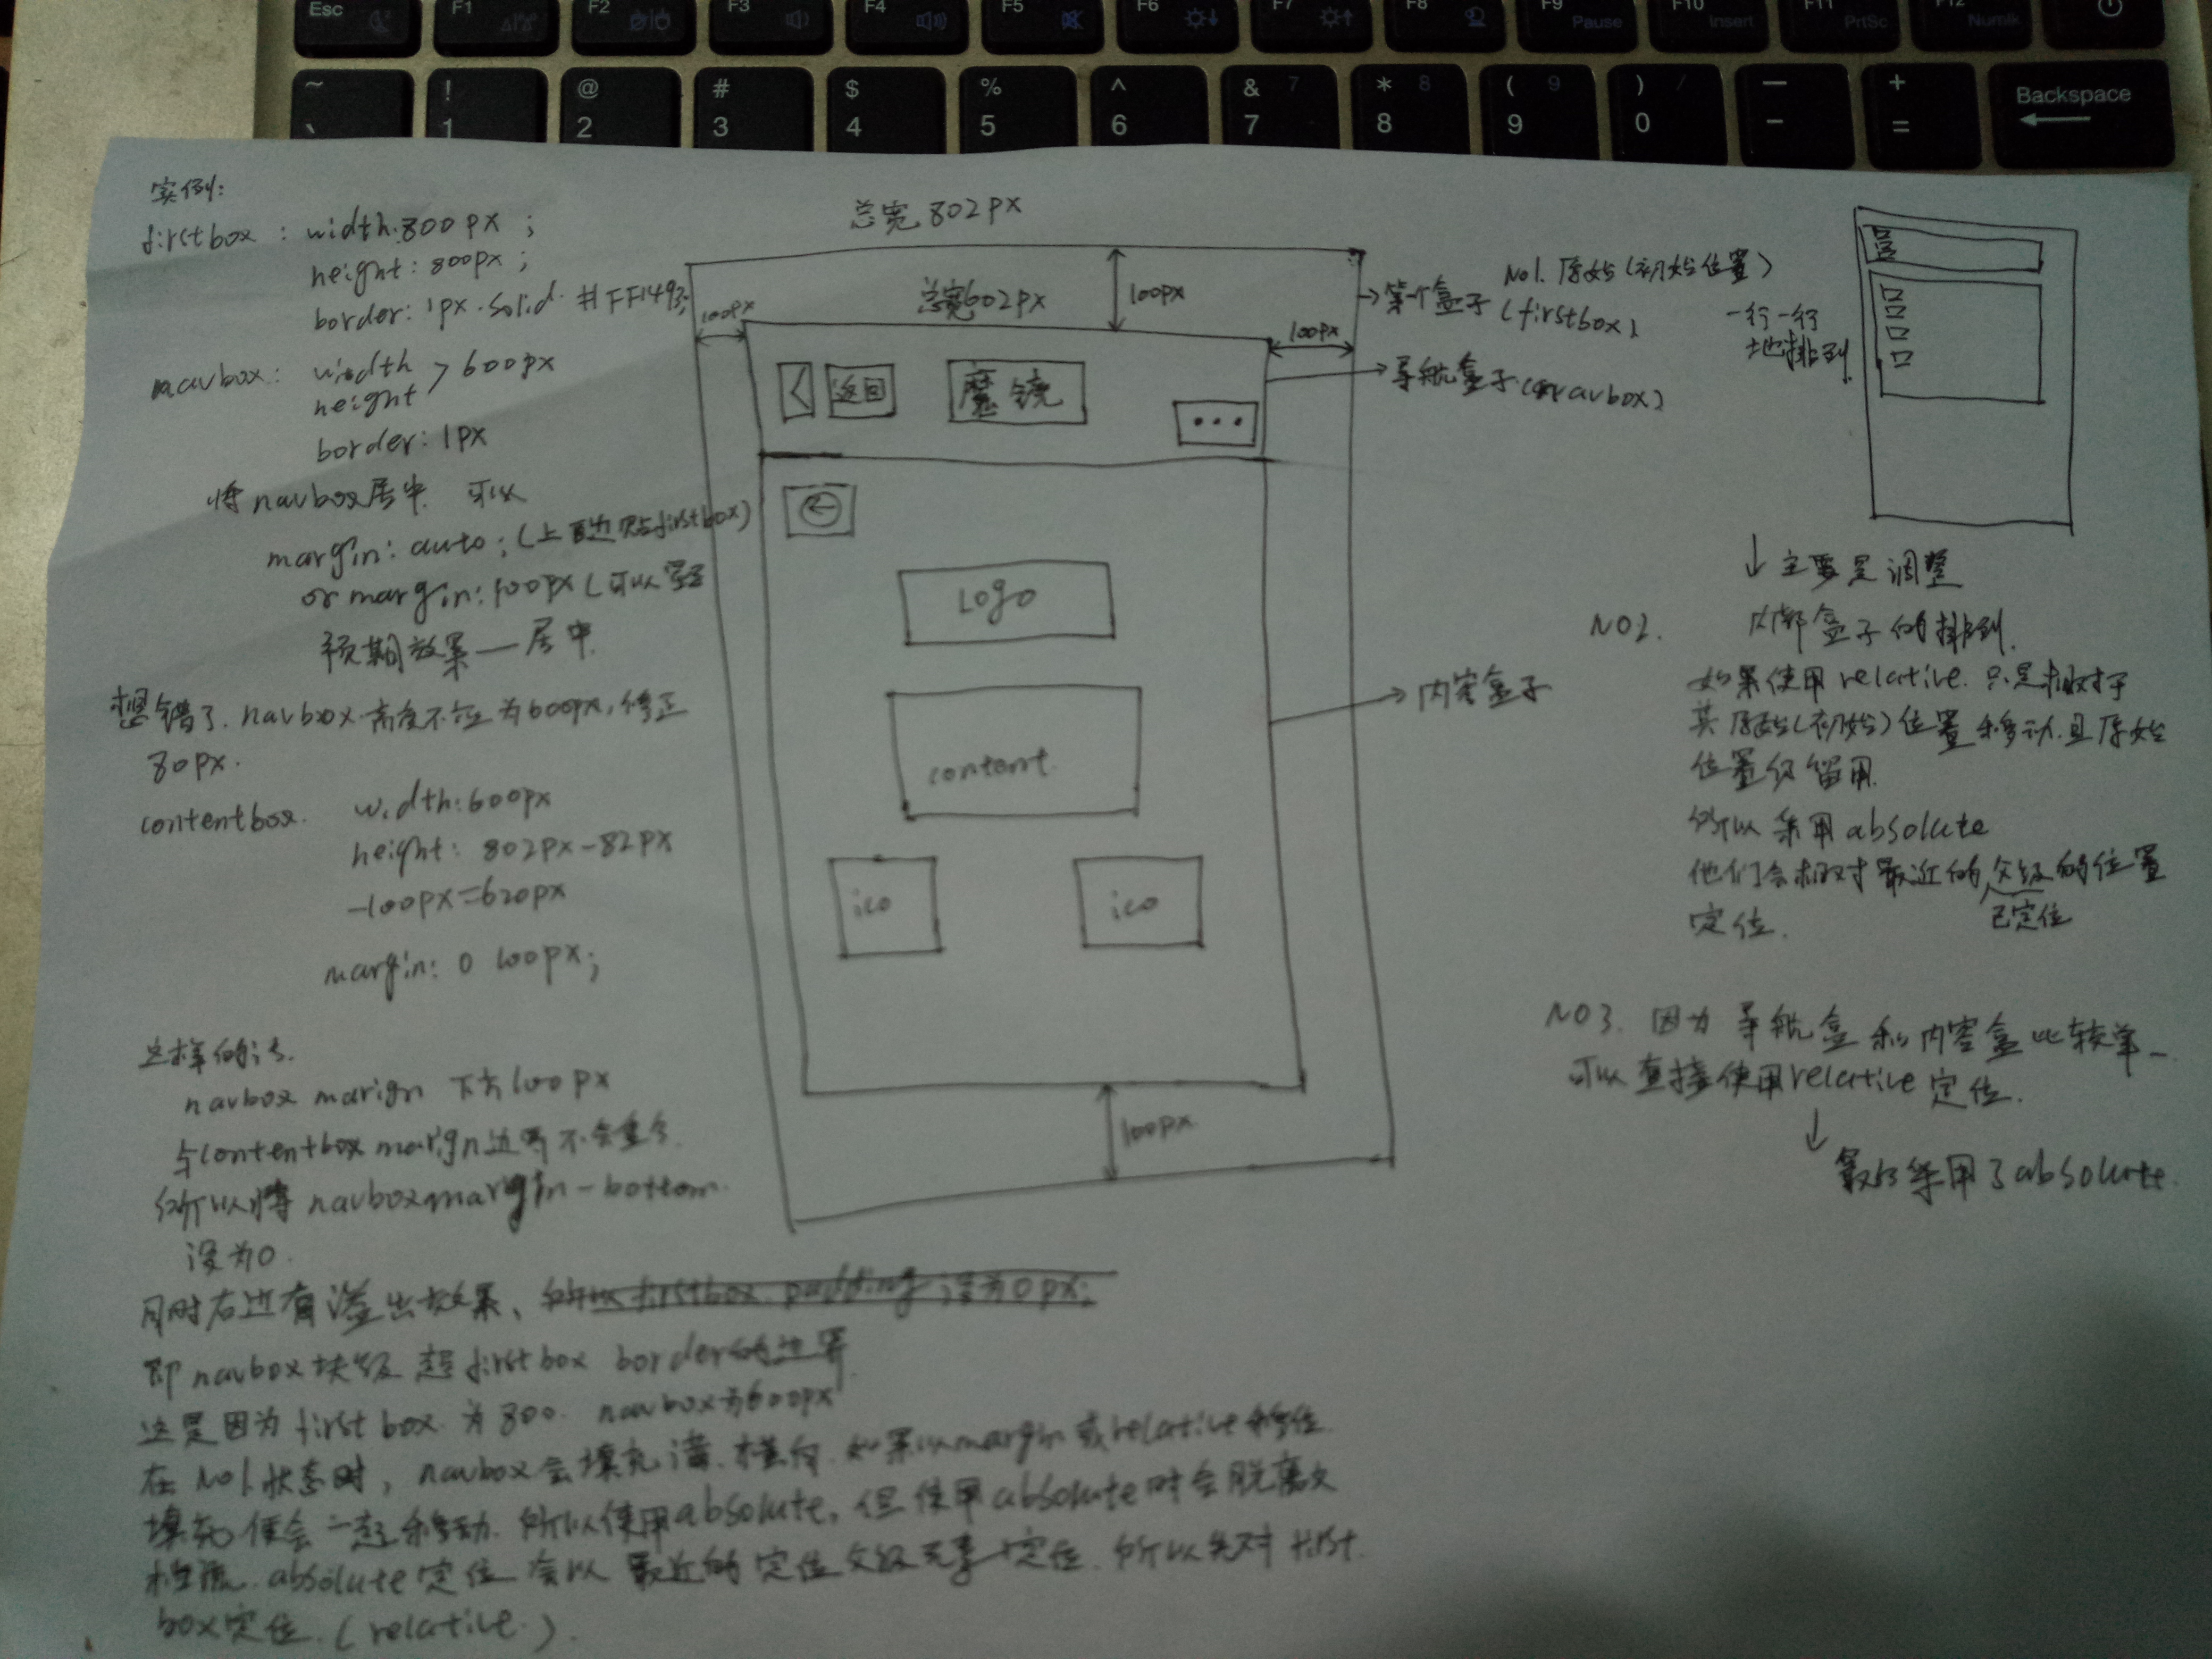 Esc
F1
F2
F3
F4
F5
F6
F7
F8
F9 Pause
F10 Insert
F11 PrtSc
F12 Numlk
~ `
! 1
@ 2
# 3
$ 4
% 5
^ 6
& 7 7
* 8 8
( 9 9
) 0 /
— -
+ =
Backspace
实例:
firstbox : width:800px ;
height: 800px ;
border: 1px solid #FF1493;
navbox: width
height > 600px
border: 1px
将navbox居中. 可以
margin: auto; (上边贴firstbox)
or margin: 100px (可以
预期效果—居中.
想错了. navbox高度不应为600px, 修正
80px.
contentbox. width:600px
height: 802px-82px
-100px=620px
margin: 0 100px;
这样的话.
navbox marign 下方100px
与contentbox margin边界不会重合.
所以将 navbox margin-bottom.
设为0.
同时右边有溢出效果、所以 firstbox padding 设为0px;
即navbox块级 超 firstbox border的边界
这是因为 firstbox 为 800. navbox为600px
在No1状态时, navbox会填充满.横向.如果以margin或relative移位.
填充便会一起移动.所以使用absolute. 但使用absolute时会脱离文
档流. absolute定位会以最近的定位父级元素定位.所以先对 first.
box定位.(relative.).
总宽802px
总宽602px
100px
100px
100px
返回
魔镜
...
Logo
content.
ico
ico
100px
→第一个盒子 (firstbox)
→导航盒子(navbox)
→内容盒子
No1. 原始(初始位置)
一行一行
地排列.
↓主要是调整
NO2. 内部盒子的排列.
如果使用relative.只是相对于
其原始(初始)位置移动.且原始
位置仍留用.
所以采用absolute
他们会相对最近的父级的位置
已定位
定位.
NO3. 因为导航盒和内容盒比较单一
可以直接使用relative定位.
↓
最后采用了absolute.